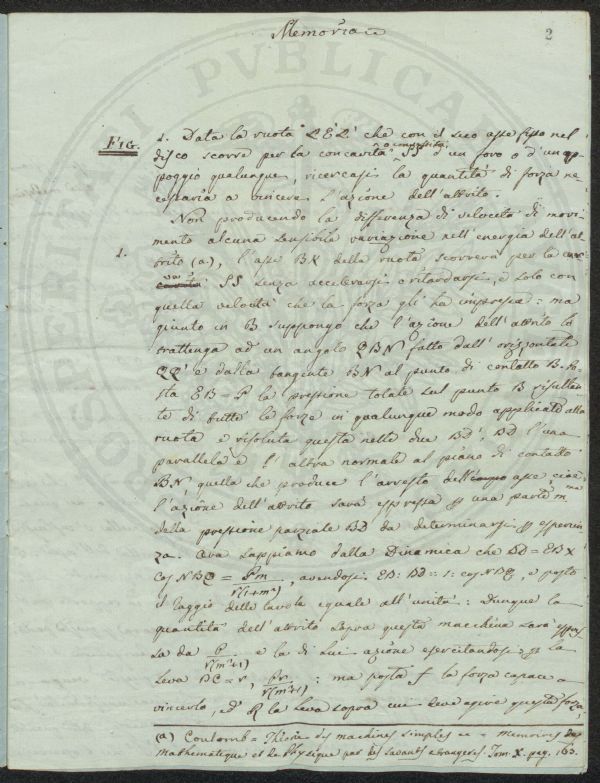 Memoria
2
FIG.
1. Data la ruota LEL' che con il suo asse fisso nel
disco scorre per la concavità o convessità SS d'un foro o d'un ap-
poggio qualunque, ricercasi la quantità di forza ne
cessaria a vincere l'azione dell'attrito.
Non producendo la differenza di velocità di movi-
1.
mento alcuna sensibile variazione nell'energia dell'at
trito (a), l'asse BX della ruota scorrerà per la
SS senza accelerarsi o ritardarsi, e solo con
quella velocità che la forza gli ha impressa: ma
giunto in B suppongo che l'azione dell'attrito lo
trattenga ad un angolo QBN fatto dall'orizzontale
QQ' e dalla tangente BN al punto di contatto B. Po-
sta EB = P la pressione totale sul punto B risultan-
te di tutte le forze in qualunque modo applicate alla
ruota e risoluta questa nelle due BD', BD l'una
parallela e l'altra normale al piano di contatto
BN quella che produce l'arresto dell' asse, cioè
l'azione dell'attrito sarà espressa p una parte m ma
della pressione parziale BD da determinarsi p esperien
za. Ora sappiamo dalla Dinamica che BD = EB X
cos NBQ = Pm / r(1+m²), avendosi EB: BD :: 1: cos NBQ, e posto
il raggio delle tavole eguale all'unità: Dunque la
quantità dell'attrito sopra questa macchina sarà espres
sa da P / r(m²+1) e la di lui azione esercitandosi p la
leva BC = r, Pr / r(m²+1): ma posta f la forza capace a
vincerlo, ed R la leva sopra cui deve agire questa forza,
(a) Coulomb = Théorie des machines simples = memoires de
mathematique et de Physique par des savants etrangeres Tom. X. pag. 163.